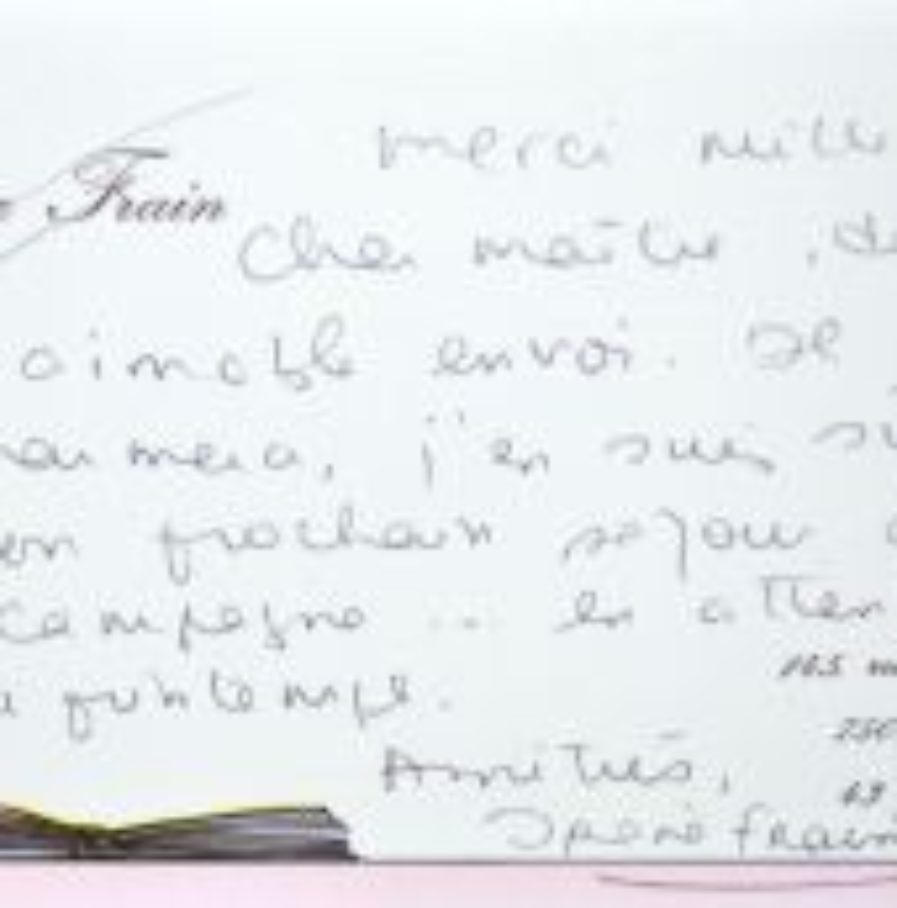 Frain
merci mille
Cher maître, de
aimable envoi. Il
charmera, j'en suis sû
on prochain séjour
campagne ... en atten
printemps.
Amitiés,
Irène Frain